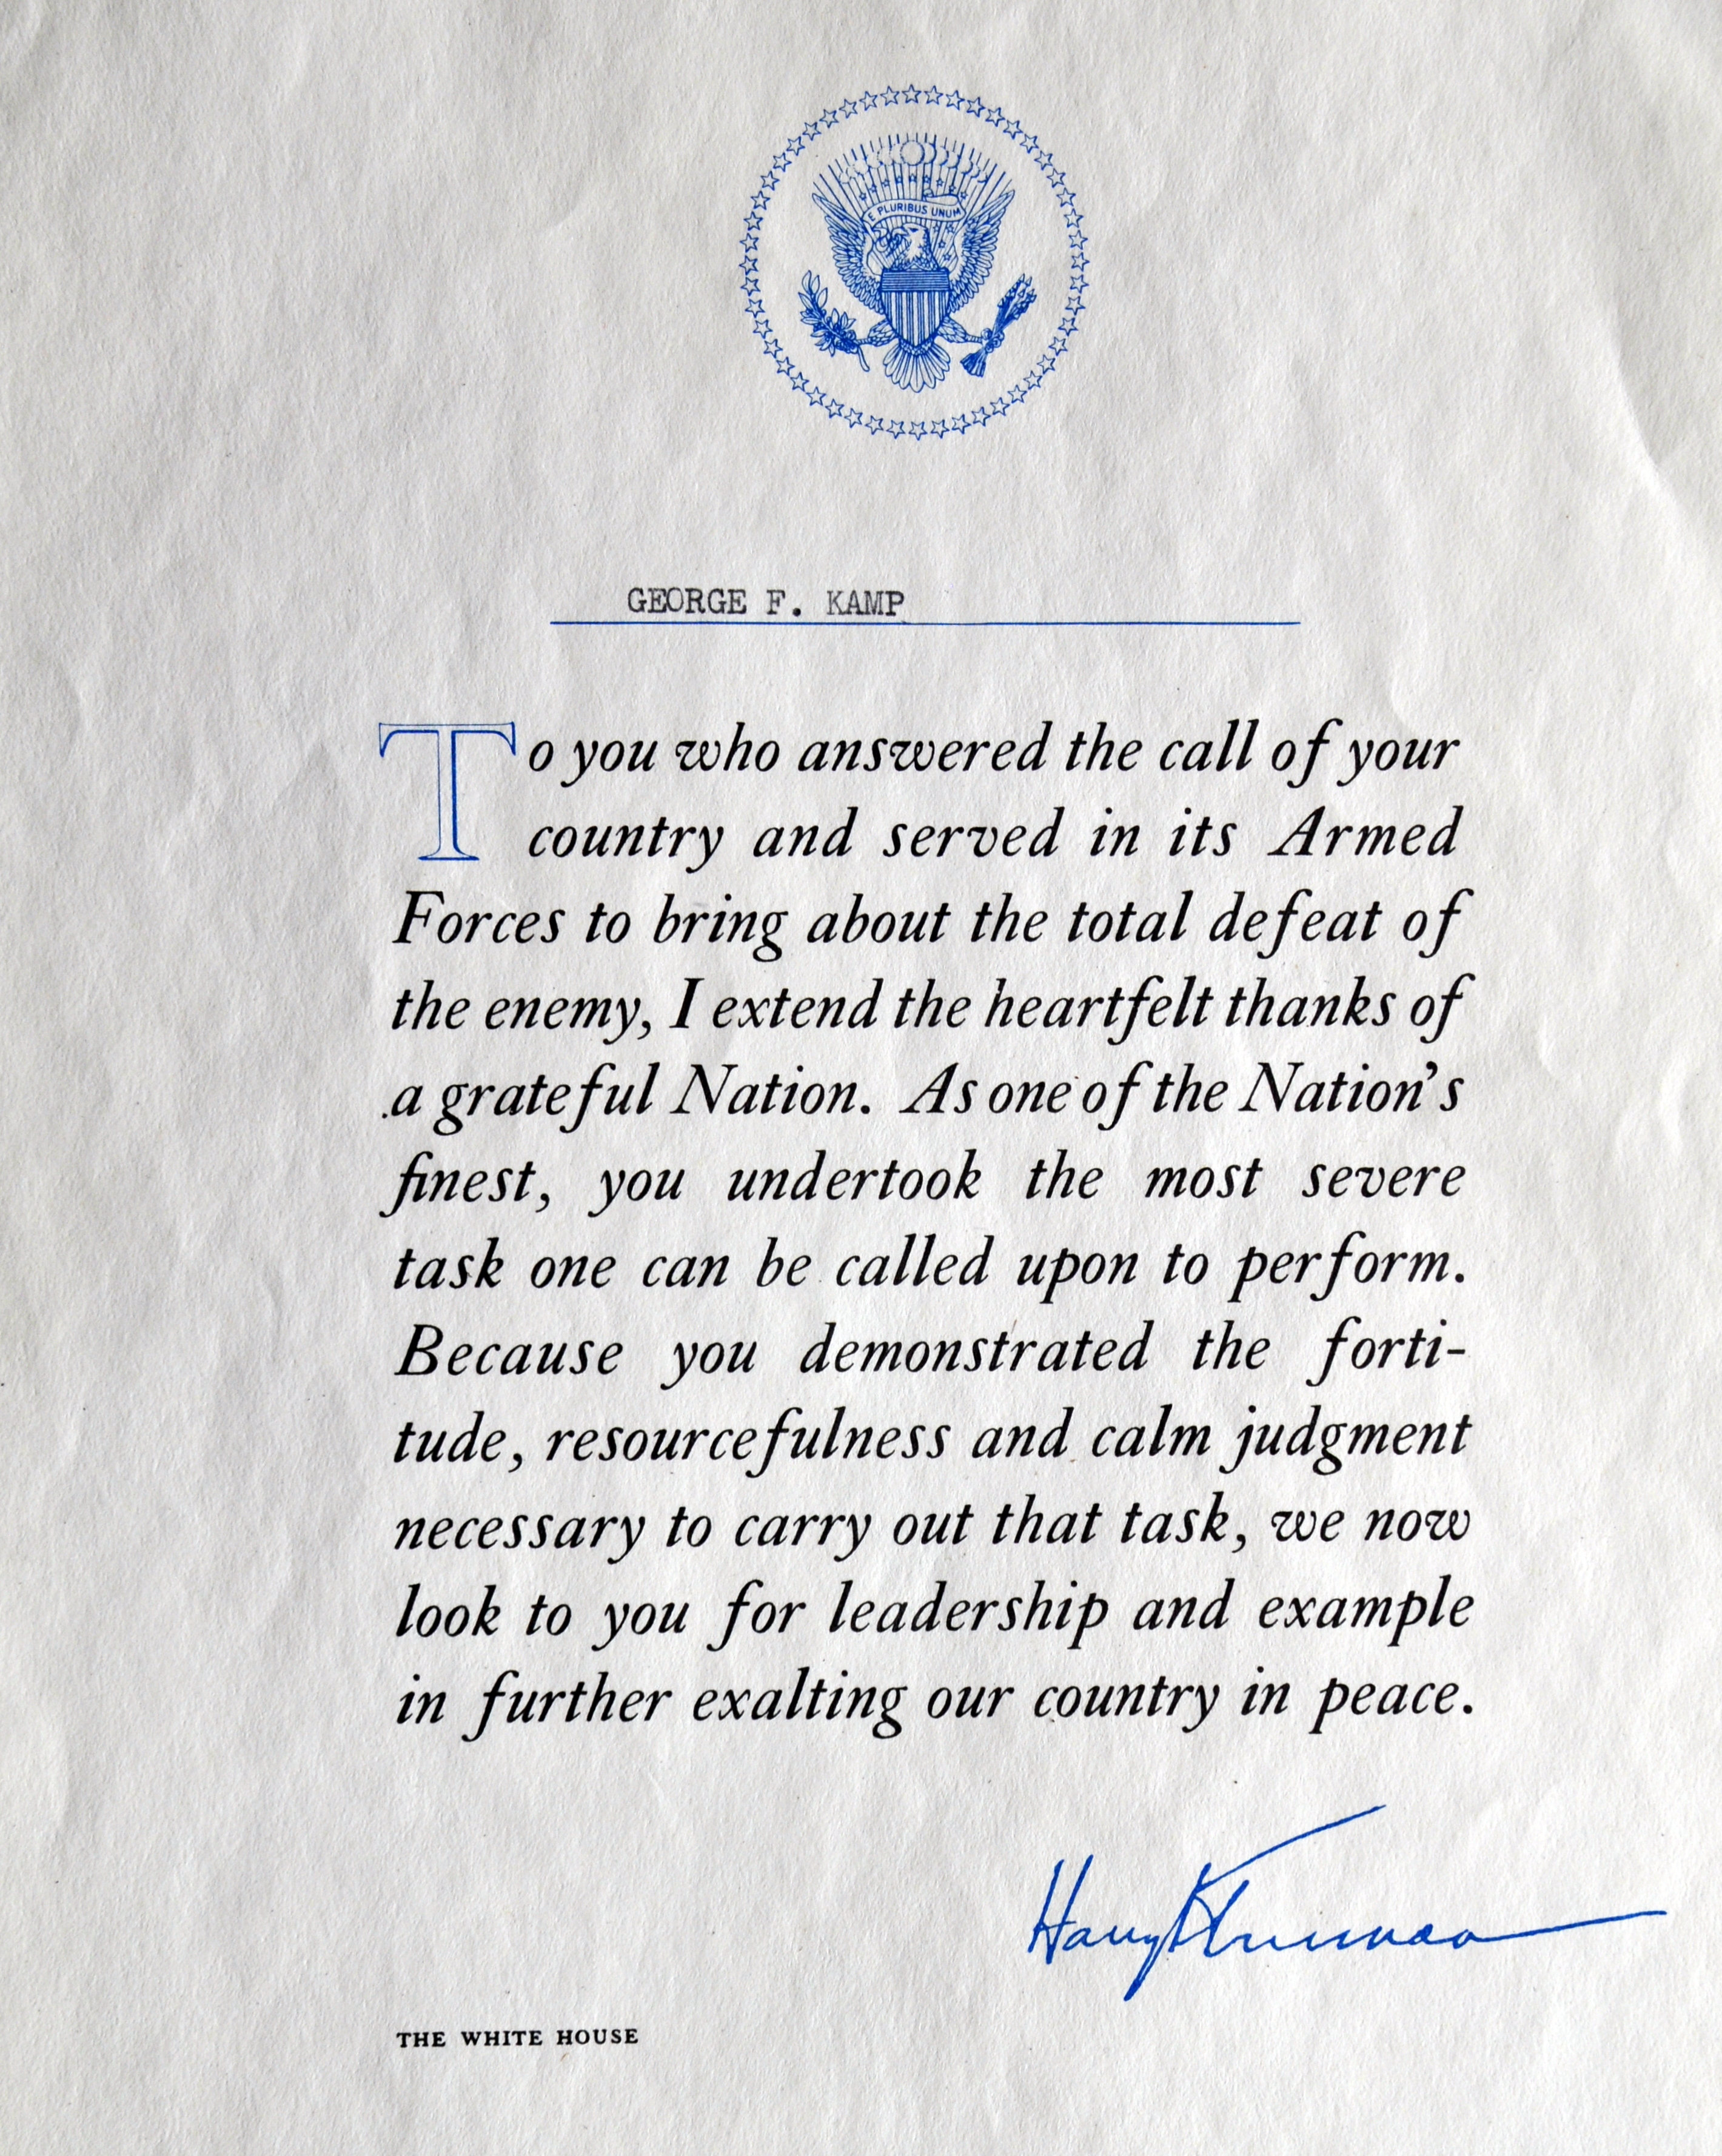 E PLURIBUS UNUM
GEORGE F. KAMP
To you who answered the call of your
country and served in its Armed
Forces to bring about the total defeat of
the enemy, I extend the heartfelt thanks of
a grateful Nation. As one of the Nation's
finest, you undertook the most severe
task one can be called upon to perform.
Because you demonstrated the forti-
tude, resourcefulness and calm judgment
necessary to carry out that task, we now
look to you for leadership and example
in further exalting our country in peace.
Harry S Truman
THE WHITE HOUSE